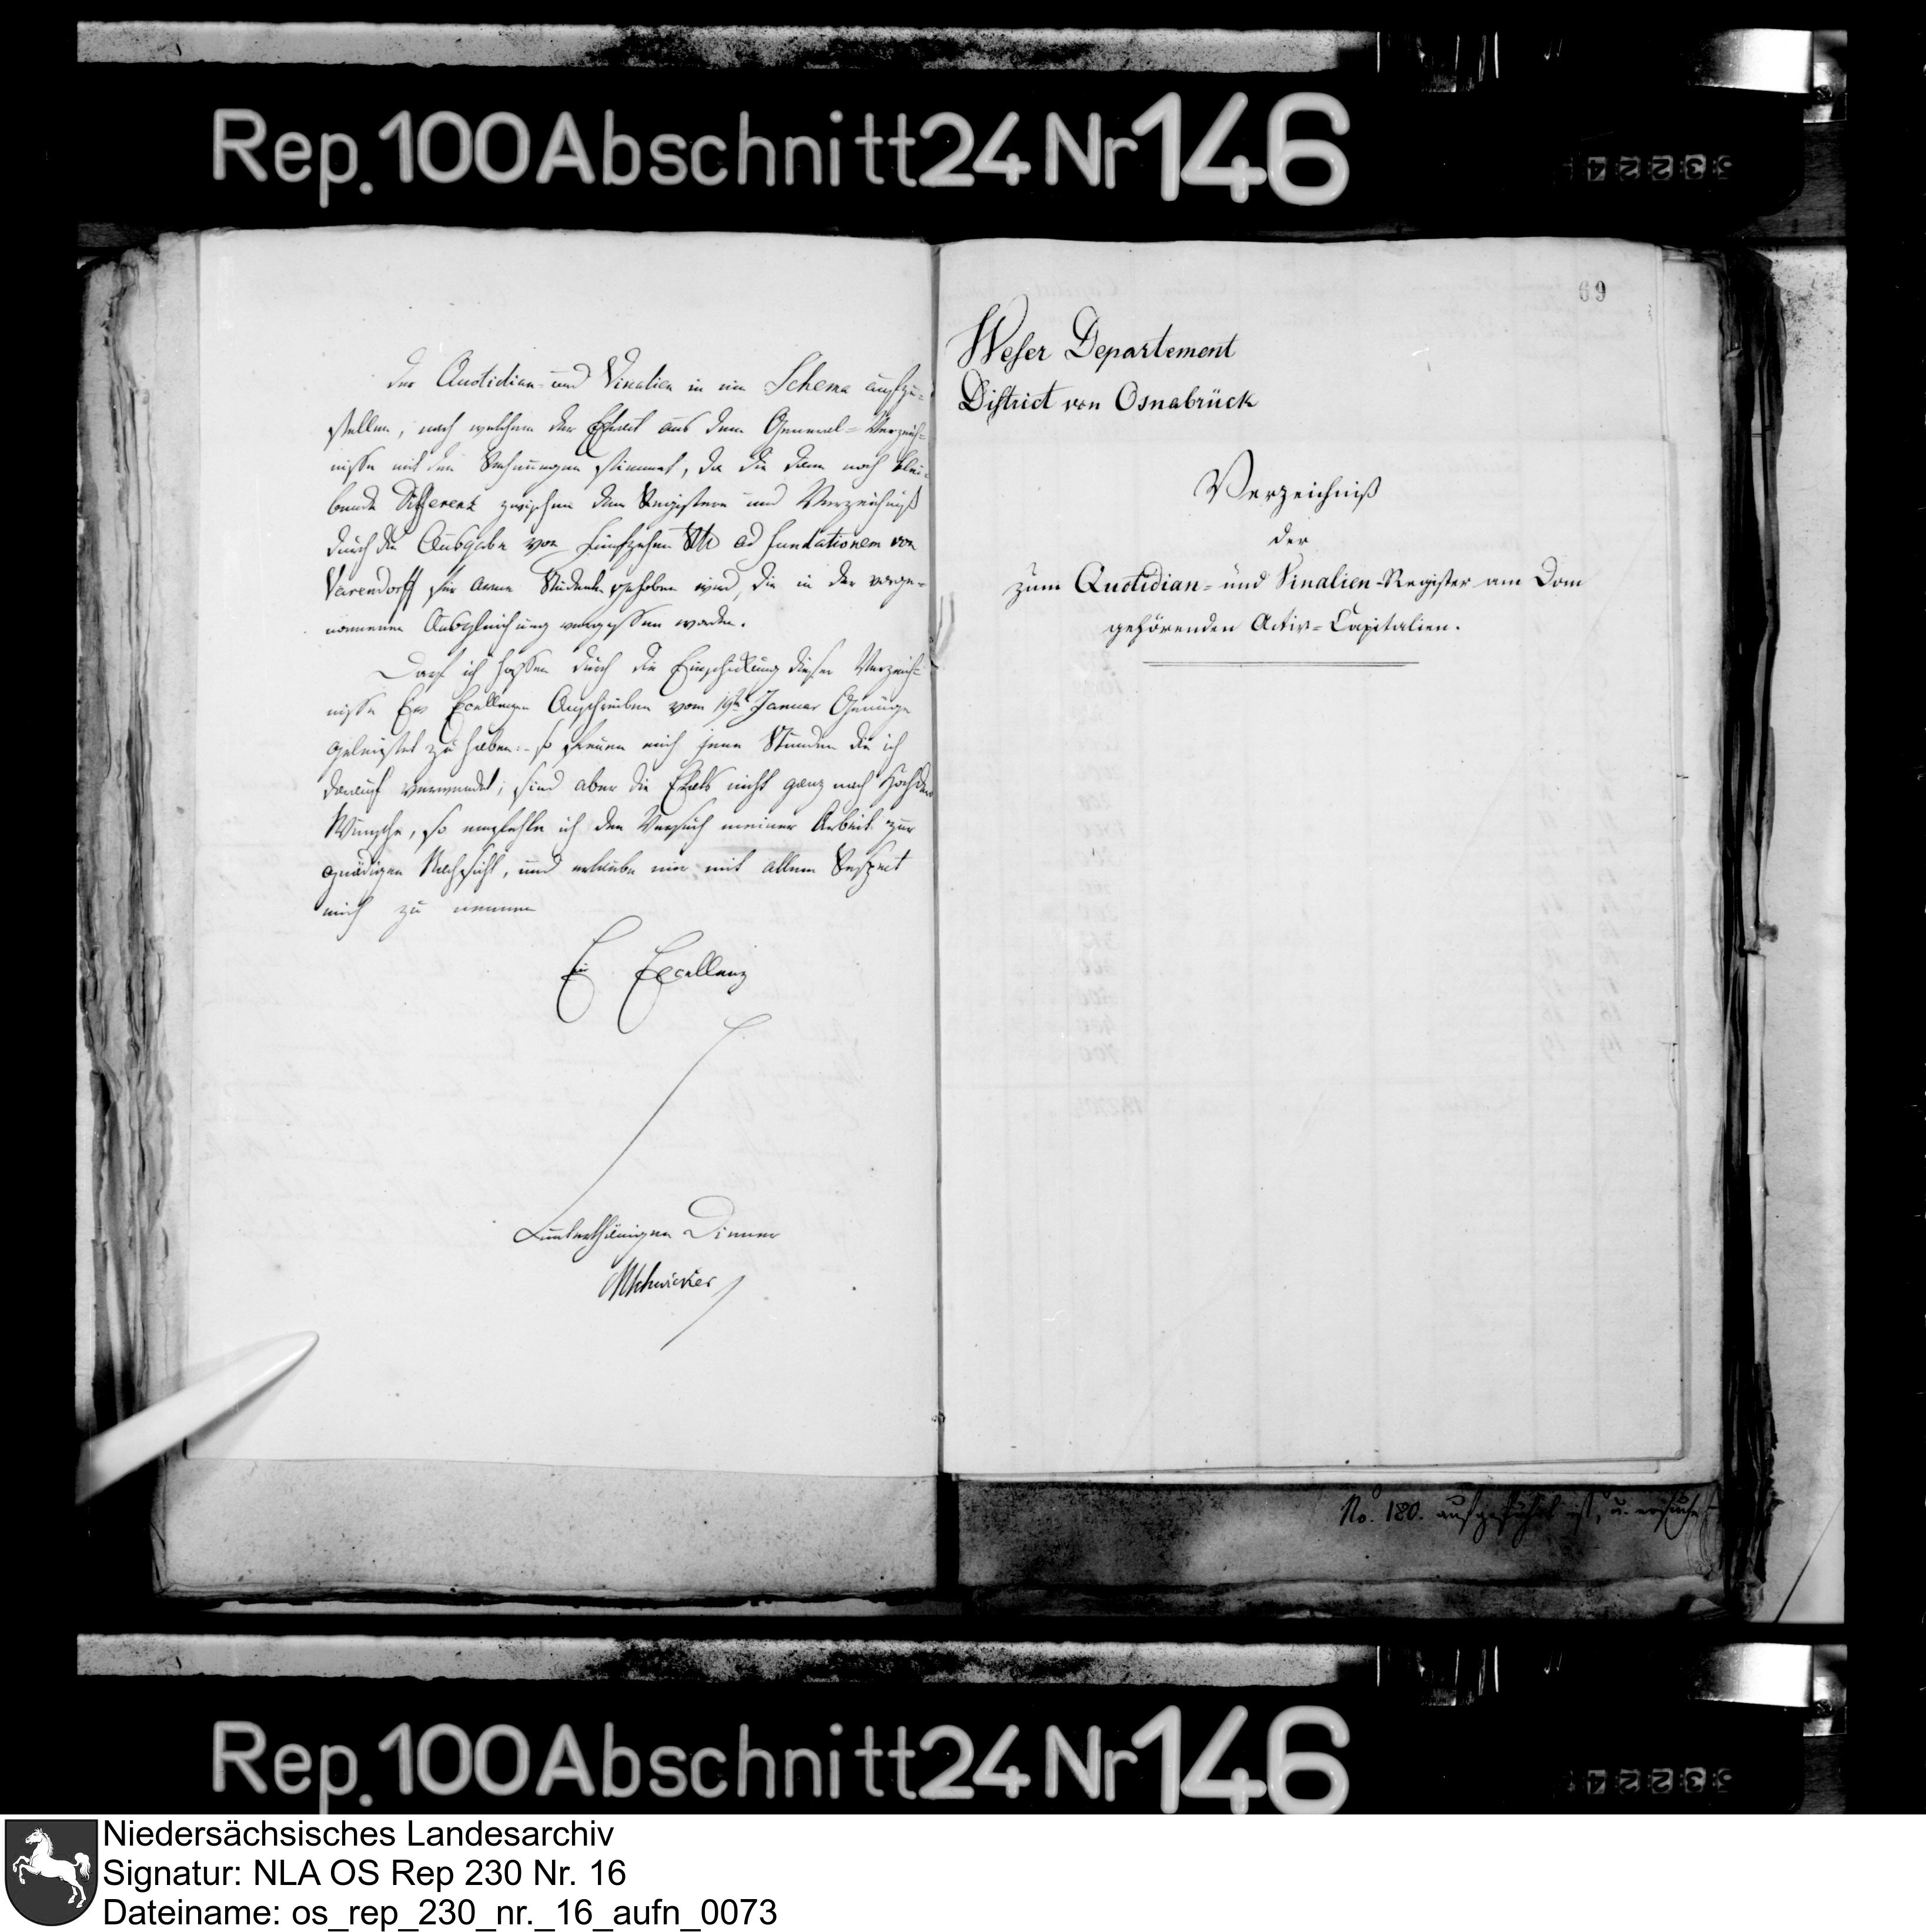 Rep. 100 Abschnitt 24 Nr 146
33224
der Quotidian- und Vinalien in ein Schema aufzu-
stellen, nach welchem der Extract aus dem General-Verzeich-
nisse mit den Rechnungen stimmet, da die dann noch blei-
bende Differenz zwischen dem Registern und Verzeichniß
durch die Ausgabe von fünfzehn Rth ad fundationem von
Varendorff für arme Studenten gehoben wird, die in der vorge-
nommenen Ausgleichung vergessen worden.
Darf ich hoffen durch die Einschickung dieser Verzeich-
nisse Ew Excellenzen Anschreiben vom 19ten Januar Genüge
geleistet zu haben: so freuen mich jene Stunden die ich
darauf verwendet; sind aber die Etats nicht ganz nach
Wunsche, so empfehle ich den Versuch meiner Arbeit zur
gnädigen Nachsicht, und erlaube mir mit allem Respect
mich zu nennen
Ew Excellenz
unterthänigen Diener
69
Weser Departement
District von Osnabrück
Verzeichniß
der
zum Quotidian- und Vinalien-Register am Dom
gehörenden Activ-Capitalien.
No. 180. aufgeführt ist, u. ersuche
Rep. 100 Abschnitt 24 Nr 146
33224
Niedersächsisches Landesarchiv
Signatur: NLA OS Rep 230 Nr. 16
Dateiname: os_rep_230_nr._16_aufn_0073